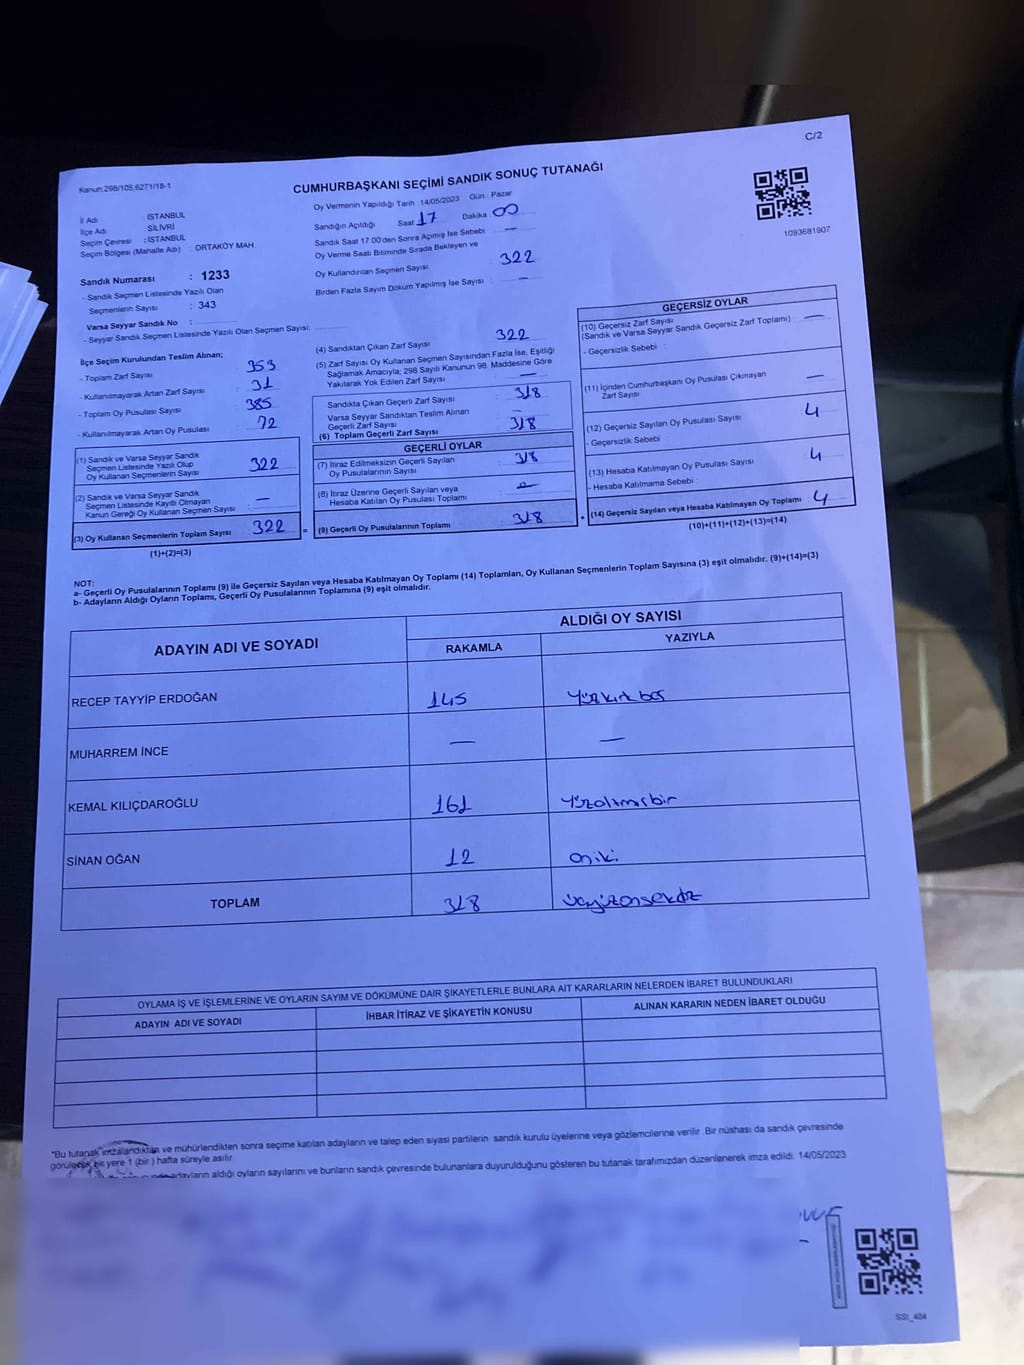 C/2
Kanun:298/105,6271/18-1
CUMHURBAŞKANI SEÇİMİ SANDIK SONUÇ TUTANAĞI
1093681907
İl Adı : İSTANBUL
İlçe Adı : SİLİVRİ
Seçim Çevresi : İSTANBUL
Seçim Bölgesi (Mahalle Adı) : ORTAKÖY MAH.
Sandık Numarası : 1233
- Sandık Seçmen Listesinde Yazılı Olan
Seçmenlerin Sayısı : 343
Varsa Seyyar Sandık No :
- Seyyar Sandık Seçmen Listesinde Yazılı Olan Seçmen Sayısı:
İlçe Seçim Kurulundan Teslim Alınan;
- Toplam Zarf Sayısı : 353
- Kullanılmayarak Artan Zarf Sayısı : 31
- Toplam Oy Pusulası Sayısı : 385
- Kullanılmayarak Artan Oy Pusulası : 72
(1) Sandık ve Varsa Seyyar Sandık
Seçmen Listesinde Yazılı Olup
Oy Kullanan Seçmenlerin Sayısı : 322
(2) Sandık ve Varsa Seyyar Sandık
Seçmen Listesinde Kayıtlı Olmayan
Kanun Gereği Oy Kullanan Seçmen Sayısı : —
(3) Oy Kullanan Seçmenlerin Toplam Sayısı : 322
(1)+(2)=(3)
Oy Vermenin Yapıldığı Tarih 14/05/2023 Gün : Pazar
Sandığın Açıldığı Saat 17 Dakika 00
Sandık Saat 17:00'den Sonra Açmış İse Sebebi : —
Oy Verme Saati Bitiminde Sırada Bekleyen ve
Oy Kullandırılan Seçmen Sayısı : 322
Birden Fazla Sayım Döküm Yapılmış İse Sayısı : —
(4) Sandıktan Çıkan Zarf Sayısı : 322
(5) Zarf Sayısı Oy Kullanan Seçmen Sayısından Fazla İse, Eşitliği
Sağlamak Amacıyla; 298 Sayılı Kanunun 98. Maddesine Göre
Yakılarak Yok Edilen Zarf Sayısı : —
Sandıkta Çıkan Geçerli Zarf Sayısı : 318
Varsa Seyyar Sandıktan Teslim Alınan
Geçerli Zarf Sayısı : —
(6) Toplam Geçerli Zarf Sayısı : 318
GEÇERLİ OYLAR
(7) İtiraz Edilmeksizin Geçerli Sayılan
Oy Pusulalarının Sayısı : 318
(8) İtiraz Üzerine Geçerli Sayılan veya
Hesaba Katılan Oy Pusulası Toplamı :
(9) Geçerli Oy Pusulalarının Toplamı : 318
GEÇERSİZ OYLAR
(10) Geçersiz Zarf Sayısı : —
(Sandık ve Varsa Seyyar Sandık Geçersiz Zarf Toplamı)
- Geçersizlik Sebebi :
(11) İçinden Cumhurbaşkanı Oy Pusulası Çıkmayan
Zarf Sayısı : —
(12) Geçersiz Sayılan Oy Pusulası Sayısı : 4
- Geçersizlik Sebebi :
(13) Hesaba Katılmayan Oy Pusulası Sayısı : 4
- Hesaba Katılmama Sebebi :
(14) Geçersiz Sayılan veya Hesaba Katılmayan Oy Toplamı : 4
(10)+(11)+(12)+(13)=(14)
NOT:
a- Geçerli Oy Pusulalarının Toplamı (9) ile Geçersiz Sayılan veya Hesaba Katılmayan Oy Toplamı (14) Toplamları, Oy Kullanan Seçmenlerin Toplam Sayısına (3) eşit olmalıdır. (9)+(14)=(3)
b- Adayların Aldığı Oyların Toplamı, Geçerli Oy Pusulalarının Toplamına (9) eşit olmalıdır.
ADAYIN ADI VE SOYADI
ALDIĞI OY SAYISI
RAKAMLA YAZIYLA
RECEP TAYYİP ERDOĞAN 145 Yüzkırkbeş
MUHARREM İNCE — —
KEMAL KILIÇDAROĞLU 161 Yüzaltmışbir
SİNAN OĞAN 12 Oniki
TOPLAM 318 üçyüzonsekiz
OYLAMA İŞ VE İŞLEMLERİNE VE OYLARIN SAYIM VE DÖKÜMÜNE DAİR ŞİKAYETLERLE BUNLARA AİT KARARLARIN NELERDEN İBARET BULUNDUKLARI
ADAYIN ADI VE SOYADI İHBAR İTİRAZ VE ŞİKAYETİN KONUSU ALINAN KARARIN NEDEN İBARET OLDUĞU
"Bu tutanak imzalandıktan ve mühürlendikten sonra seçime katılan adayların ve talep eden siyasi partilerin sandık kurulu üyelerine veya gözlemcilerine verilir. Bir nüshası da sandık çevresinde
görülecek bir yere 1 (bir ) hafta süreyle asılır.
adayların aldığı oyların sayılarını ve bunların sandık çevresinde bulunanlara duyurulduğunu gösteren bu tutanak tarafımızdan düzenlenerek imza edildi. 14/05/2023
SSI_404